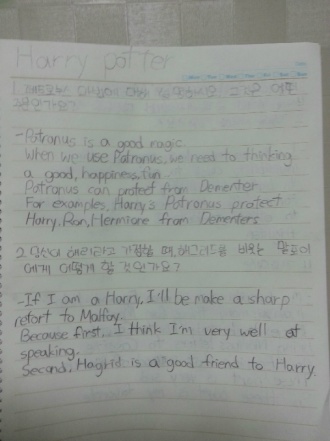 Harry potter
1. 패트로누스 마법에 대해 설명하시오. 그것은 어떤
것인가요?
-Patronus is a good magic.
When we use Patronus, we need to thinking
a good, happiness, fun.
Patronus can protect from Dementer.
For examples, Harry's Patronus protect
Harry, Ron, Hermione from Dementers
2. 당신이 해리라고 가정할 때, 해그리드를 비웃는 말포이
에게 어떻게 할 것인가요?
-If I am a Harry, I'll be make a sharp
retort to Malfoy.
Because first, I think I'm very well at
speaking.
Second, Hagrid is a good friend to Harry.